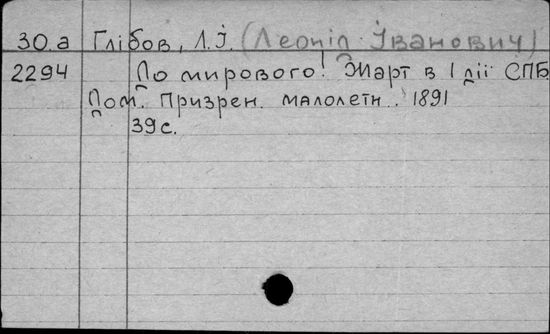 30.а Глібов, Л.І. (Леонід Іванович)
2294 До мирового! Жарт в 1 дії СПБ
Дом. Призрен. малолетн.. 1891
39с.